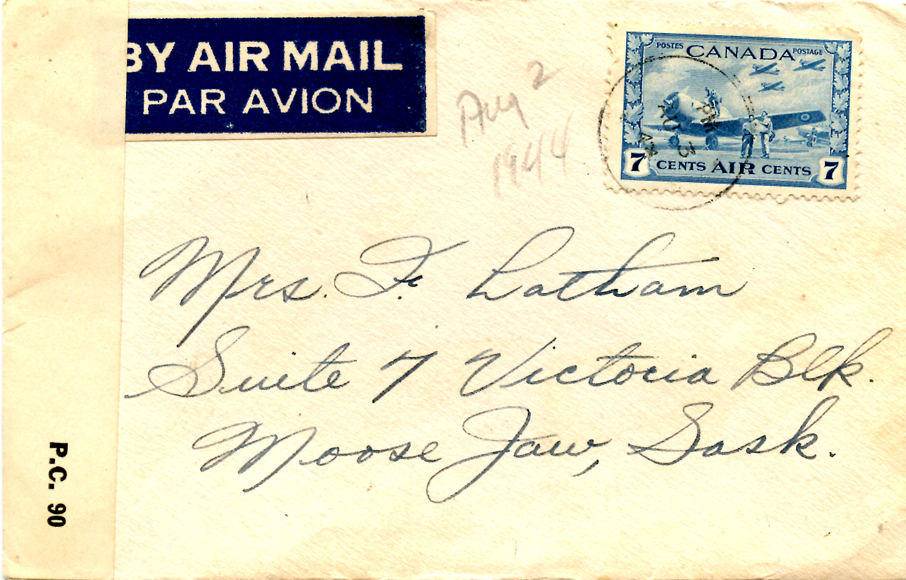 BY AIR MAIL
PAR AVION
Aug 2
1944
POSTES CANADA POSTAGE
7 CENTS AIR CENTS 7
PM
AU 3
44
Mrs. F. Latham
Suite 7 Victoria Blk.
Moose Jaw, Sask.
P.C. 90